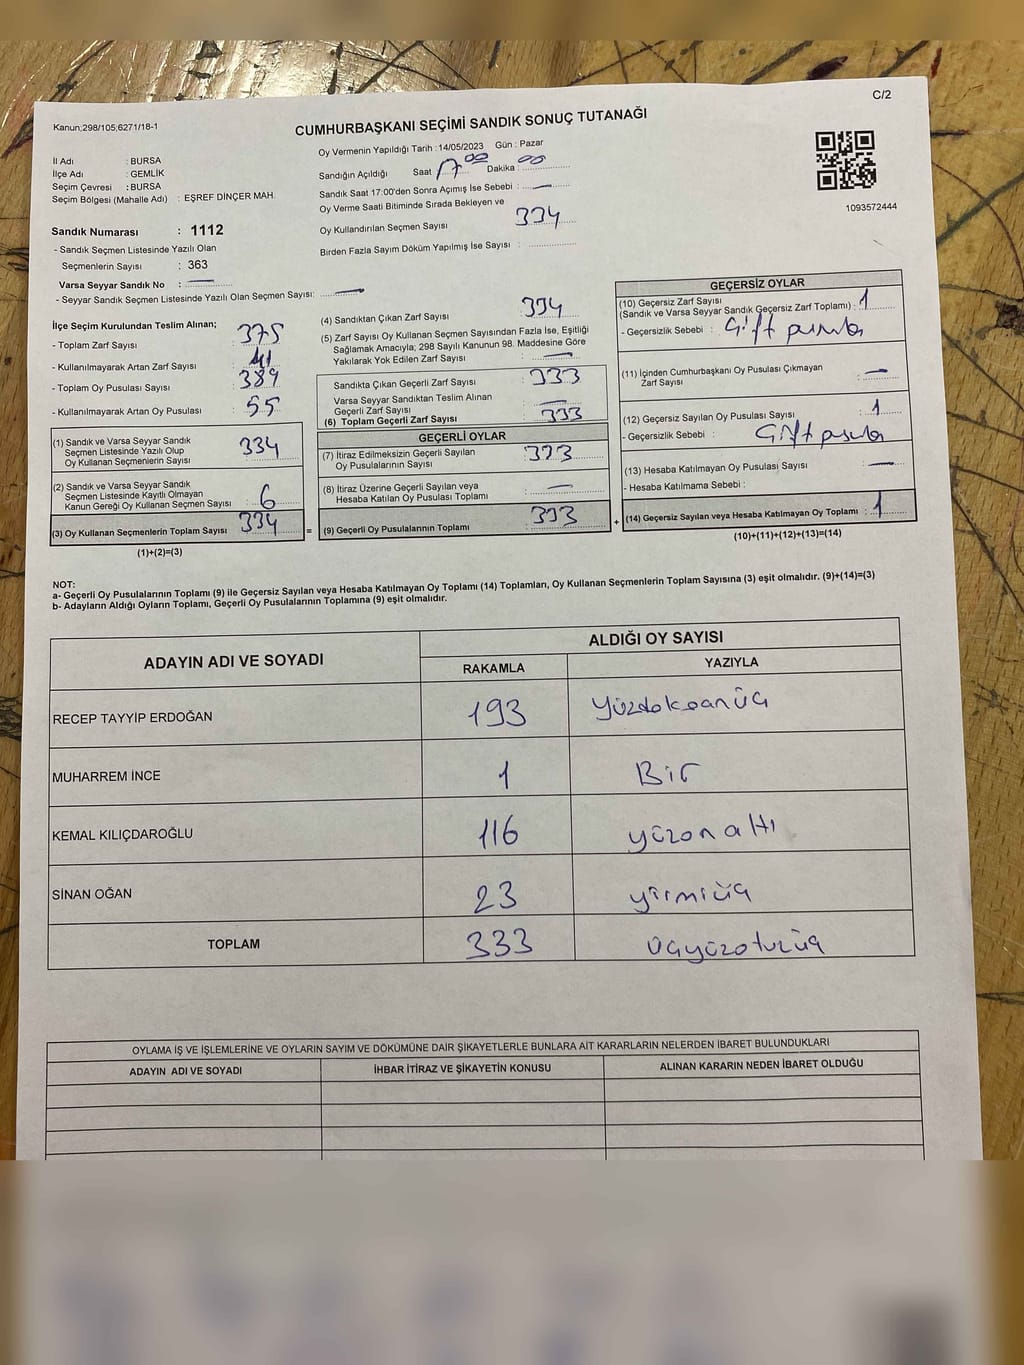 C/2
Kanun;298/105;6271/18-1
CUMHURBAŞKANI SEÇİMİ SANDIK SONUÇ TUTANAĞI
İl Adı : BURSA
İlçe Adı : GEMLİK
Seçim Çevresi : BURSA
Seçim Bölgesi (Mahalle Adı) : EŞREF DİNÇER MAH.
Sandık Numarası : 1112
- Sandık Seçmen Listesinde Yazılı Olan
Seçmenlerin Sayısı : 363
Varsa Seyyar Sandık No : —
- Seyyar Sandık Seçmen Listesinde Yazılı Olan Seçmen Sayısı: —
Oy Vermenin Yapıldığı Tarih : 14/05/2023 Gün : Pazar
Sandığın Açıldığı Saat 17:00 Dakika : 00
Sandık Saat 17:00'den Sonra Açımış İse Sebebi : —
Oy Verme Saati Bitiminde Sırada Bekleyen ve
Oy Kullandırılan Seçmen Sayısı 334
Birden Fazla Sayım Döküm Yapılmış İse Sayısı :
1093572444
İlçe Seçim Kurulundan Teslim Alınan;
- Toplam Zarf Sayısı : 375
- Kullanılmayarak Artan Zarf Sayısı : 41
- Toplam Oy Pusulası Sayısı : 389
- Kullanılmayarak Artan Oy Pusulası : 55
(1) Sandık ve Varsa Seyyar Sandık
Seçmen Listesinde Yazılı Olup
Oy Kullanan Seçmenlerin Sayısı 334
(2) Sandık ve Varsa Seyyar Sandık
Seçmen Listesinde Kayıtlı Olmayan
Kanun Gereği Oy Kullanan Seçmen Sayısı 6
(3) Oy Kullanan Seçmenlerin Toplam Sayısı 334
(1)+(2)=(3)
=
(4) Sandıktan Çıkan Zarf Sayısı 334
(5) Zarf Sayısı Oy Kullanan Seçmen Sayısından Fazla İse, Eşitliği
Sağlamak Amacıyla; 298 Sayılı Kanunun 98. Maddesine Göre
Yakılarak Yok Edilen Zarf Sayısı —
Sandıkta Çıkan Geçerli Zarf Sayısı : 333
Varsa Seyyar Sandıktan Teslim Alınan
Geçerli Zarf Sayısı : —
(6) Toplam Geçerli Zarf Sayısı : 333
GEÇERLİ OYLAR
(7) İtiraz Edilmeksizin Geçerli Sayılan
Oy Pusulalarının Sayısı : 333
(8) İtiraz Üzerine Geçerli Sayılan veya
Hesaba Katılan Oy Pusulası Toplamı : —
(9) Geçerli Oy Pusulalarının Toplamı : 333
+
GEÇERSİZ OYLAR
(10) Geçersiz Zarf Sayısı
(Sandık ve Varsa Seyyar Sandık Geçersiz Zarf Toplamı) : 1
- Geçersizlik Sebebi : Çift pusula
(11) İçinden Cumhurbaşkanı Oy Pusulası Çıkmayan
Zarf Sayısı : —
(12) Geçersiz Sayılan Oy Pusulası Sayısı : 1
- Geçersizlik Sebebi : Çift pusula
(13) Hesaba Katılmayan Oy Pusulası Sayısı : —
- Hesaba Katılmama Sebebi :
(14) Geçersiz Sayılan veya Hesaba Katılmayan Oy Toplamı : 1
(10)+(11)+(12)+(13)=(14)
NOT:
a- Geçerli Oy Pusulalarının Toplamı (9) ile Geçersiz Sayılan veya Hesaba Katılmayan Oy Toplamı (14) Toplamları, Oy Kullanan Seçmenlerin Toplam Sayısına (3) eşit olmalıdır. (9)+(14)=(3)
b- Adayların Aldığı Oyların Toplamı, Geçerli Oy Pusulalarının Toplamına (9) eşit olmalıdır.
ADAYIN ADI VE SOYADI ALDIĞI OY SAYISI
RAKAMLA YAZIYLA
RECEP TAYYİP ERDOĞAN 193 yüzdoksanüç
MUHARREM İNCE 1 Bir
KEMAL KILIÇDAROĞLU 116 yüzonaltı
SİNAN OĞAN 23 yirmiüç
TOPLAM 333 üçyüzotuzüç
OYLAMA İŞ VE İŞLEMLERİNE VE OYLARIN SAYIM VE DÖKÜMÜNE DAİR ŞİKAYETLERLE BUNLARA AİT KARARLARIN NELERDEN İBARET BULUNDUKLARI
ADAYIN ADI VE SOYADI İHBAR İTİRAZ VE ŞİKAYETİN KONUSU ALINAN KARARIN NEDEN İBARET OLDUĞU